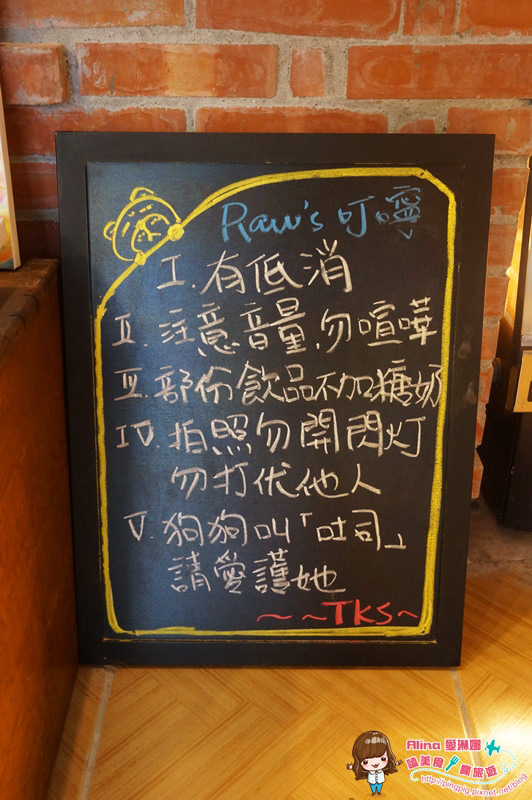 Raw's 叮嚀
I. 有低消
II. 注意音量.勿喧嘩
III. 部份飲品不加糖奶
IV. 拍照勿開閃灯
勿打伏他人
V. 狗狗叫「吐司」
請愛護她
~~TKS~
Alina 愛琳娜
嗑美食瘋旅遊
http://pingpig.pixnet.net/blog